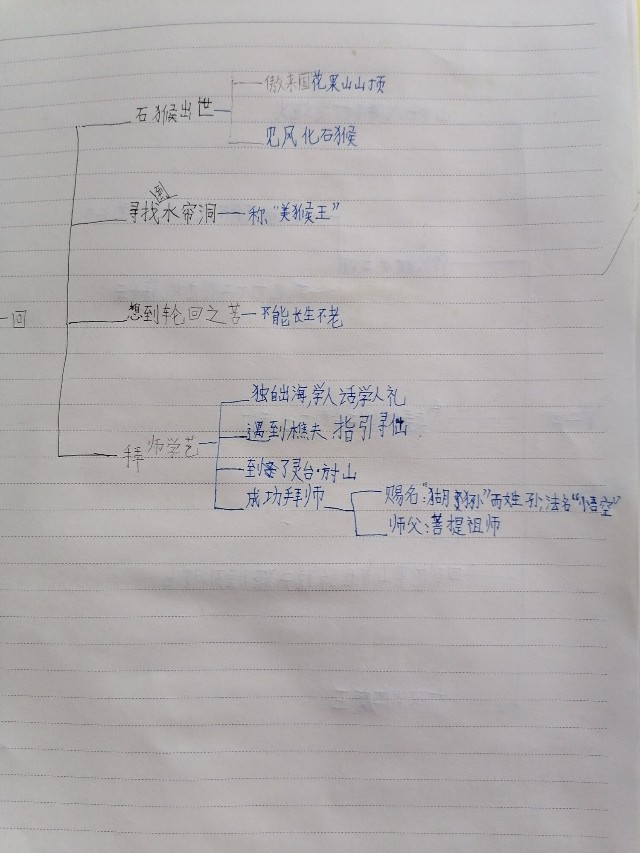 一回
石猴出世
傲来国花果山山顶
见风化石猴
寻找到水帘洞
称“美猴王”
想到轮回之苦
不能长生不老
拜师学艺
独自出海,学人话学人礼
遇到樵夫,指引寻仙
到了灵台·方寸山
成功拜师
赐名:“猢狲”而姓孙,法名“悟空”
师父:菩提祖师